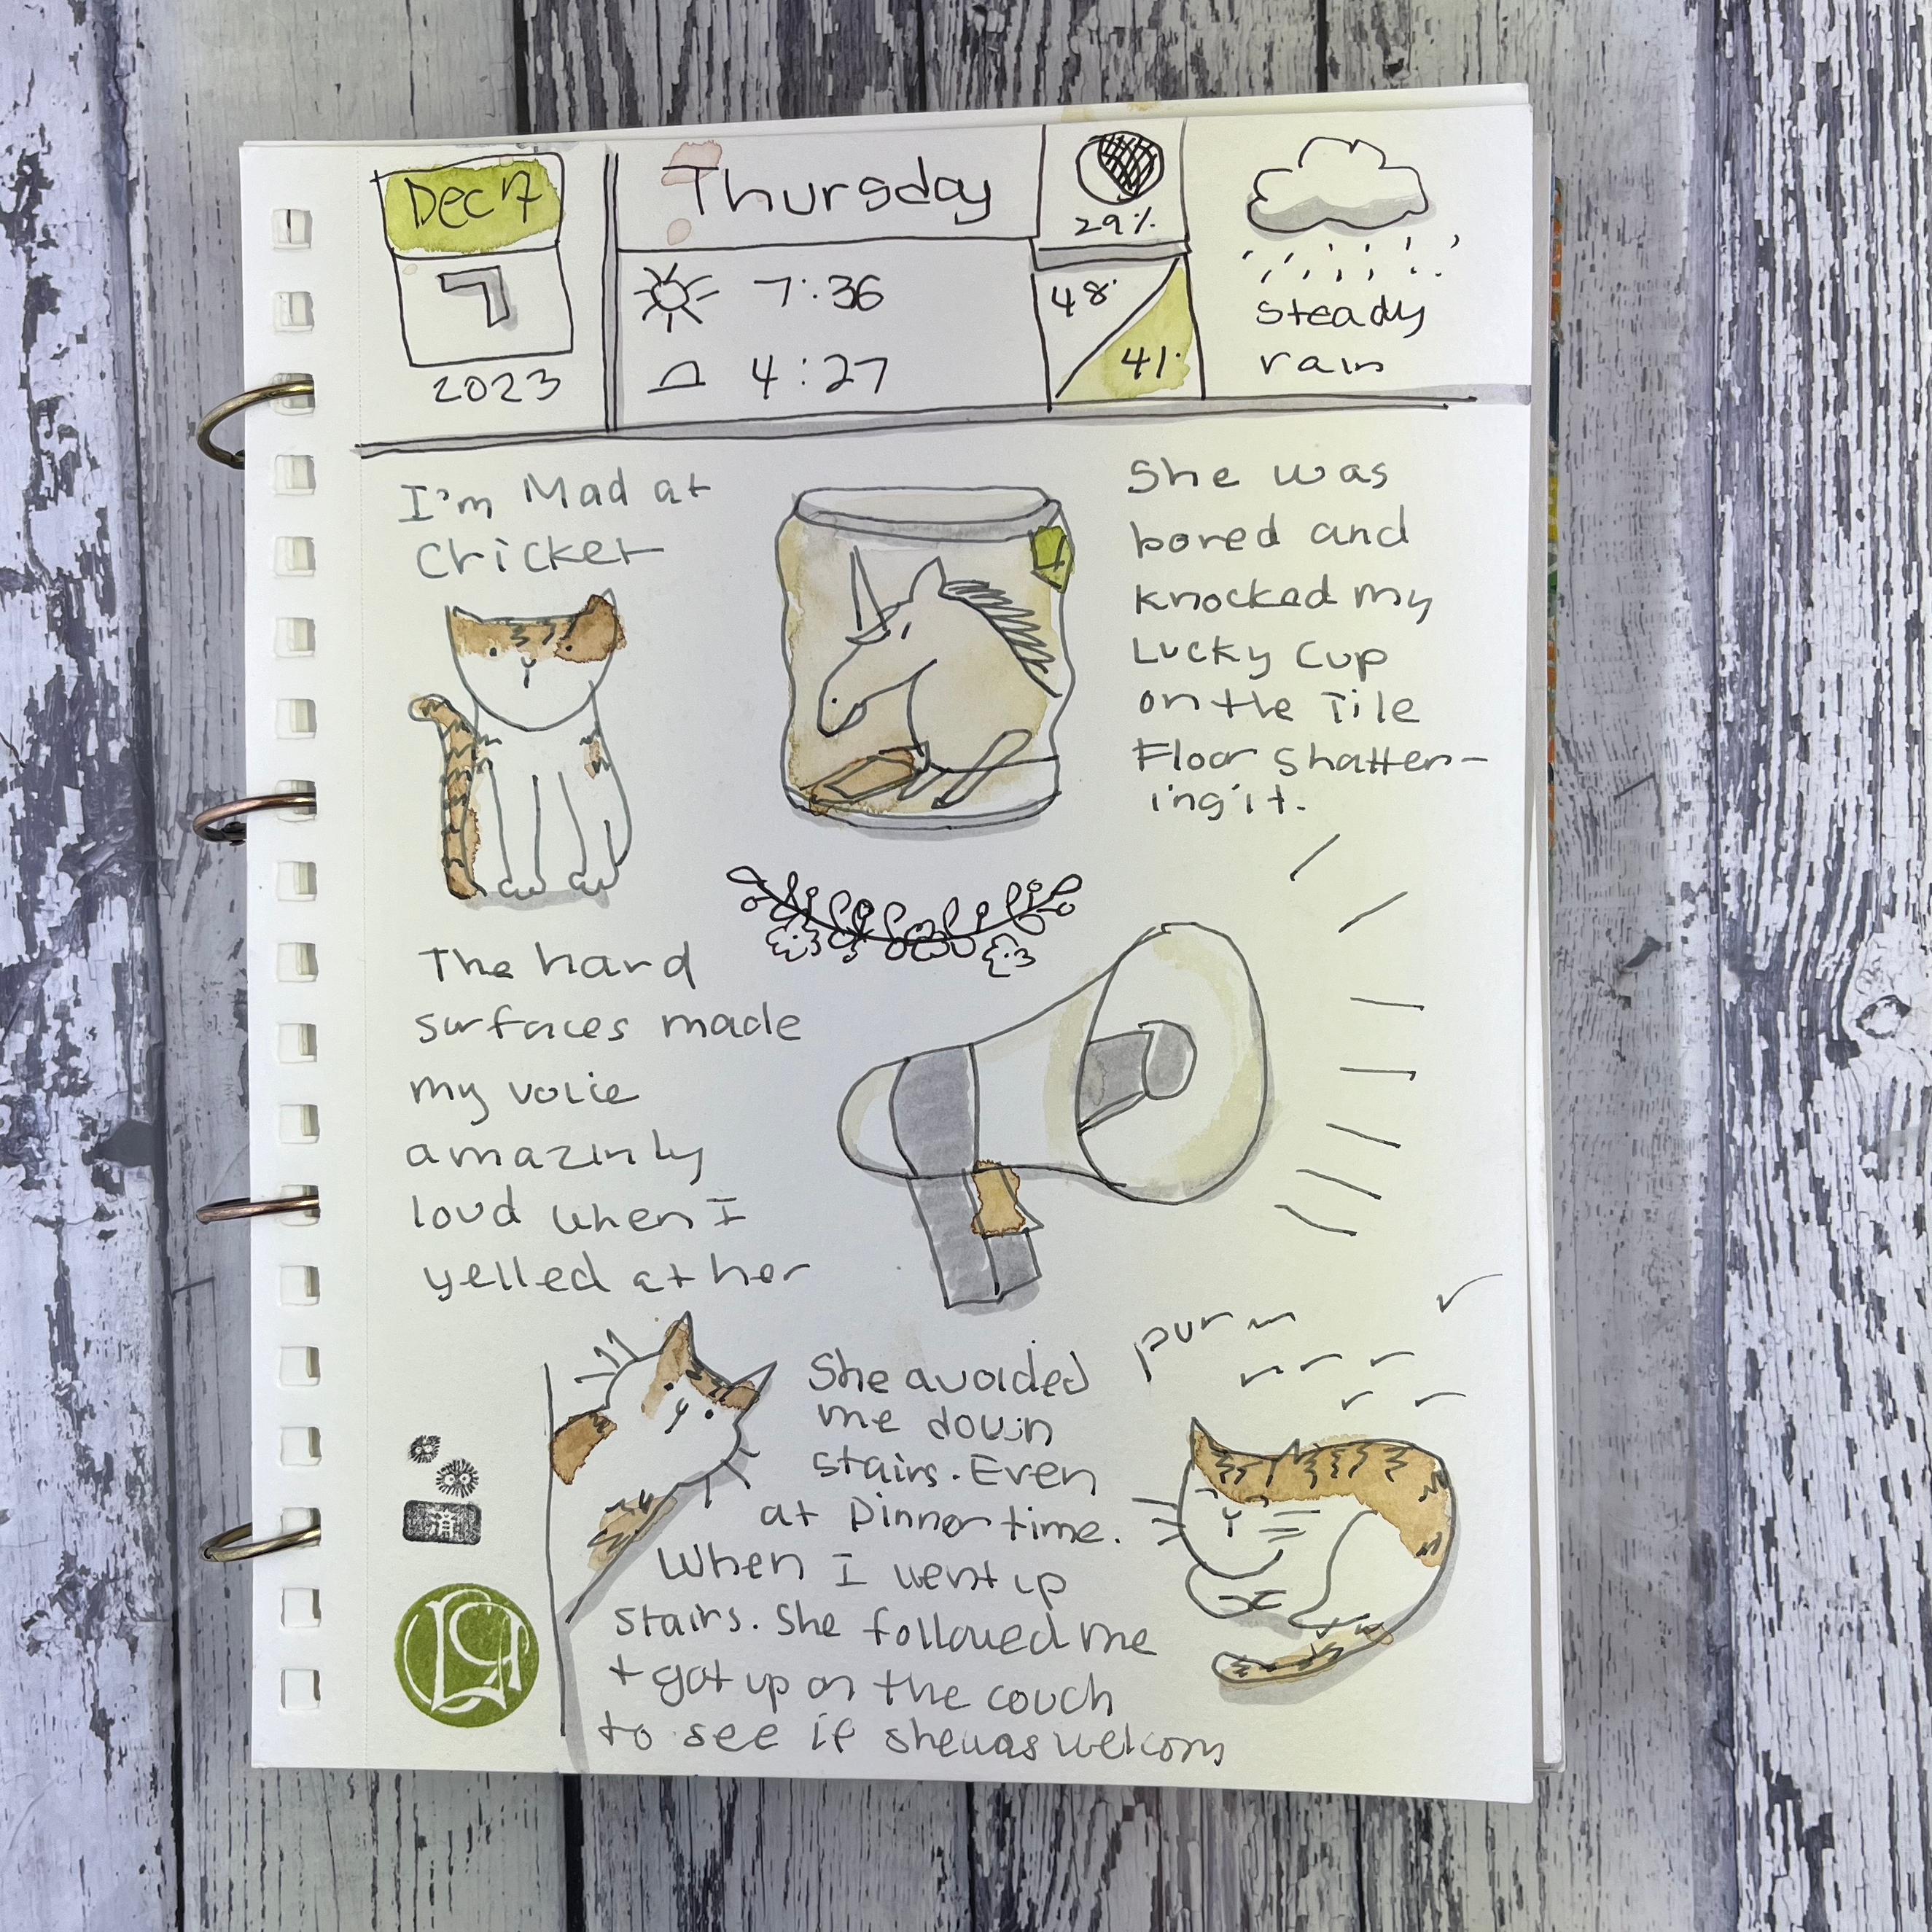 Dec 7
7
2023
Thursday
7:36
4:27
29%
48°
41°
steady
rain
I'm Mad at
Cricket
She was
bored and
knocked my
Lucky Cup
on the Tile
Floor Shatter-
ing it.
The hard
surfaces made
my voice
amazinly
loud when I
yelled at her
She avoided
me down
stairs. Even
at Dinner time.
When I went up
stairs. She followed me
+ got up on the couch
to see if she was welcom
purr
済